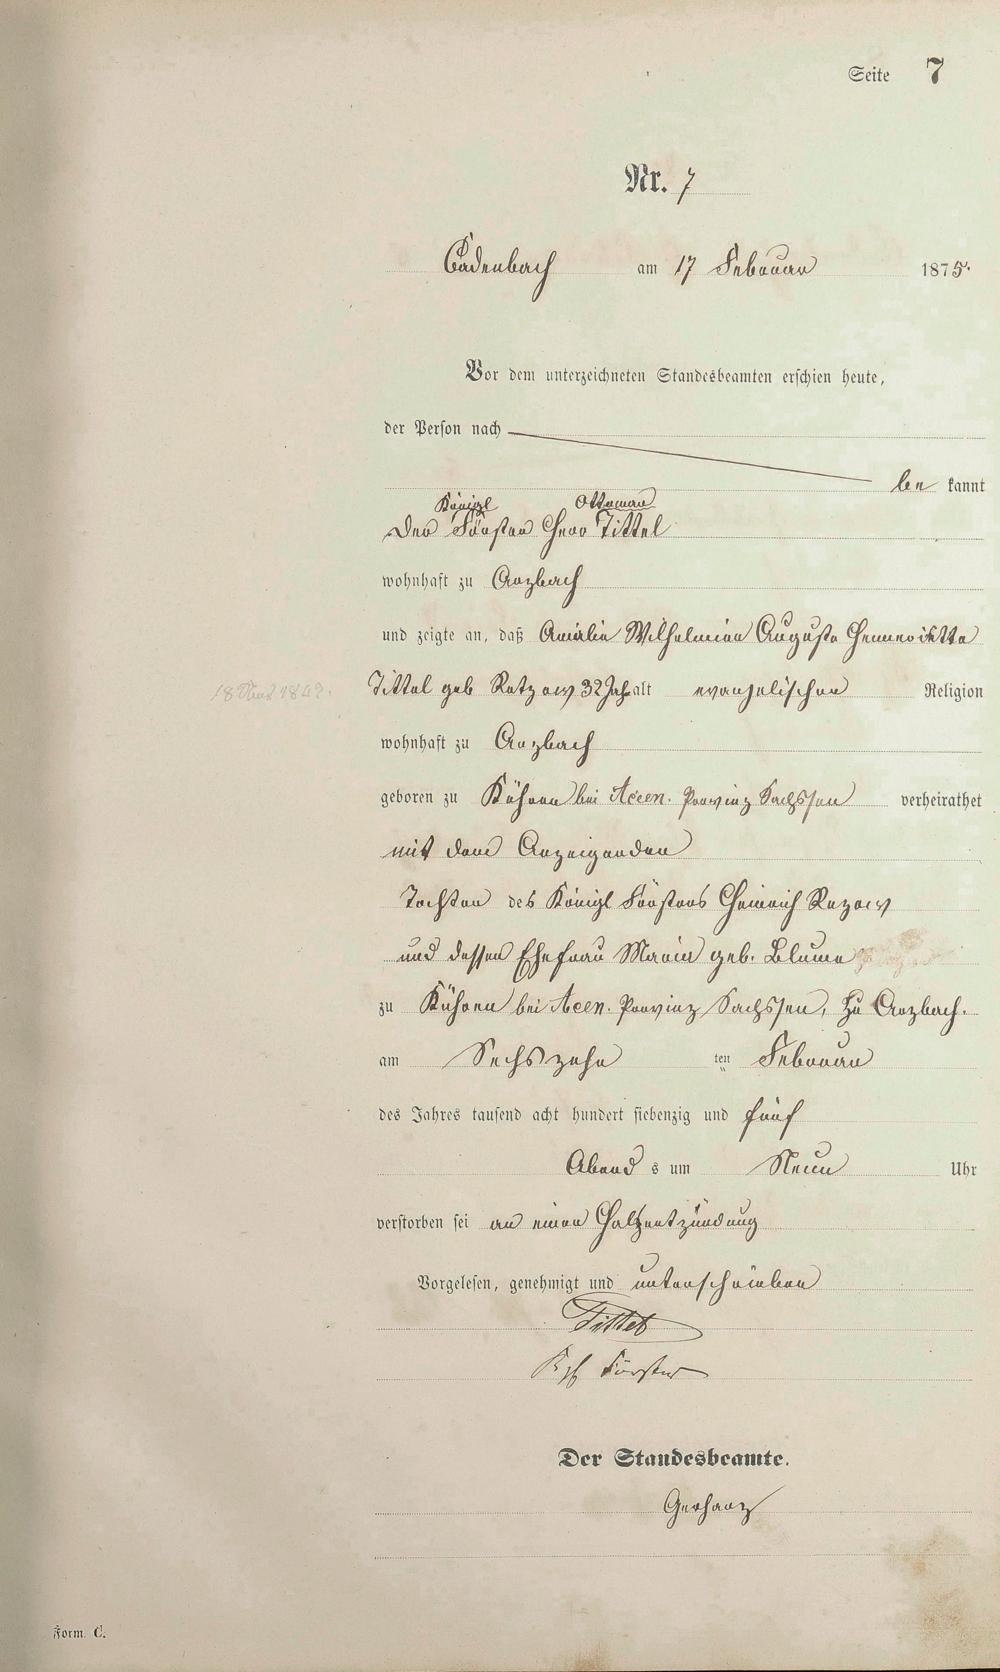 Seite 7
Nr. 7
Cadenbach am 17 Februar 1875.
Vor dem unterzeichneten Standesbeamten erschien heute,
der Person nach
be kannt
Königl Ottomar
Der Förster Herr Tittel
wohnhaft zu Arzbach
und zeigte an, daß Amalie Wilhelmine Auguste Henneriette
18 1842.
Tittel geb Retzow 32 Jahr alt evangelischer Religion
wohnhaft zu Arzbach
geboren zu Kühren bei Acen. Provinz Sachssen verheirathet
mit dem Anzeigenden
Tochter des Königl Försters Heinrich Rezow
und dessen Ehefrau Marie geb. Blume
zu Kühren bei Acen. Provinz Sachssen, zu Arzbach.
am Sechszehn ten Februar
des Jahres tausend acht hundert siebenzig und fünf
Abend s um Neun Uhr
verstorben sei an einer Halsentzündung
Vorgelesen, genehmigt und unterschrieben
Tittel
Kgl Förster
Der Standesbeamte.
Gerharz
Form. C.